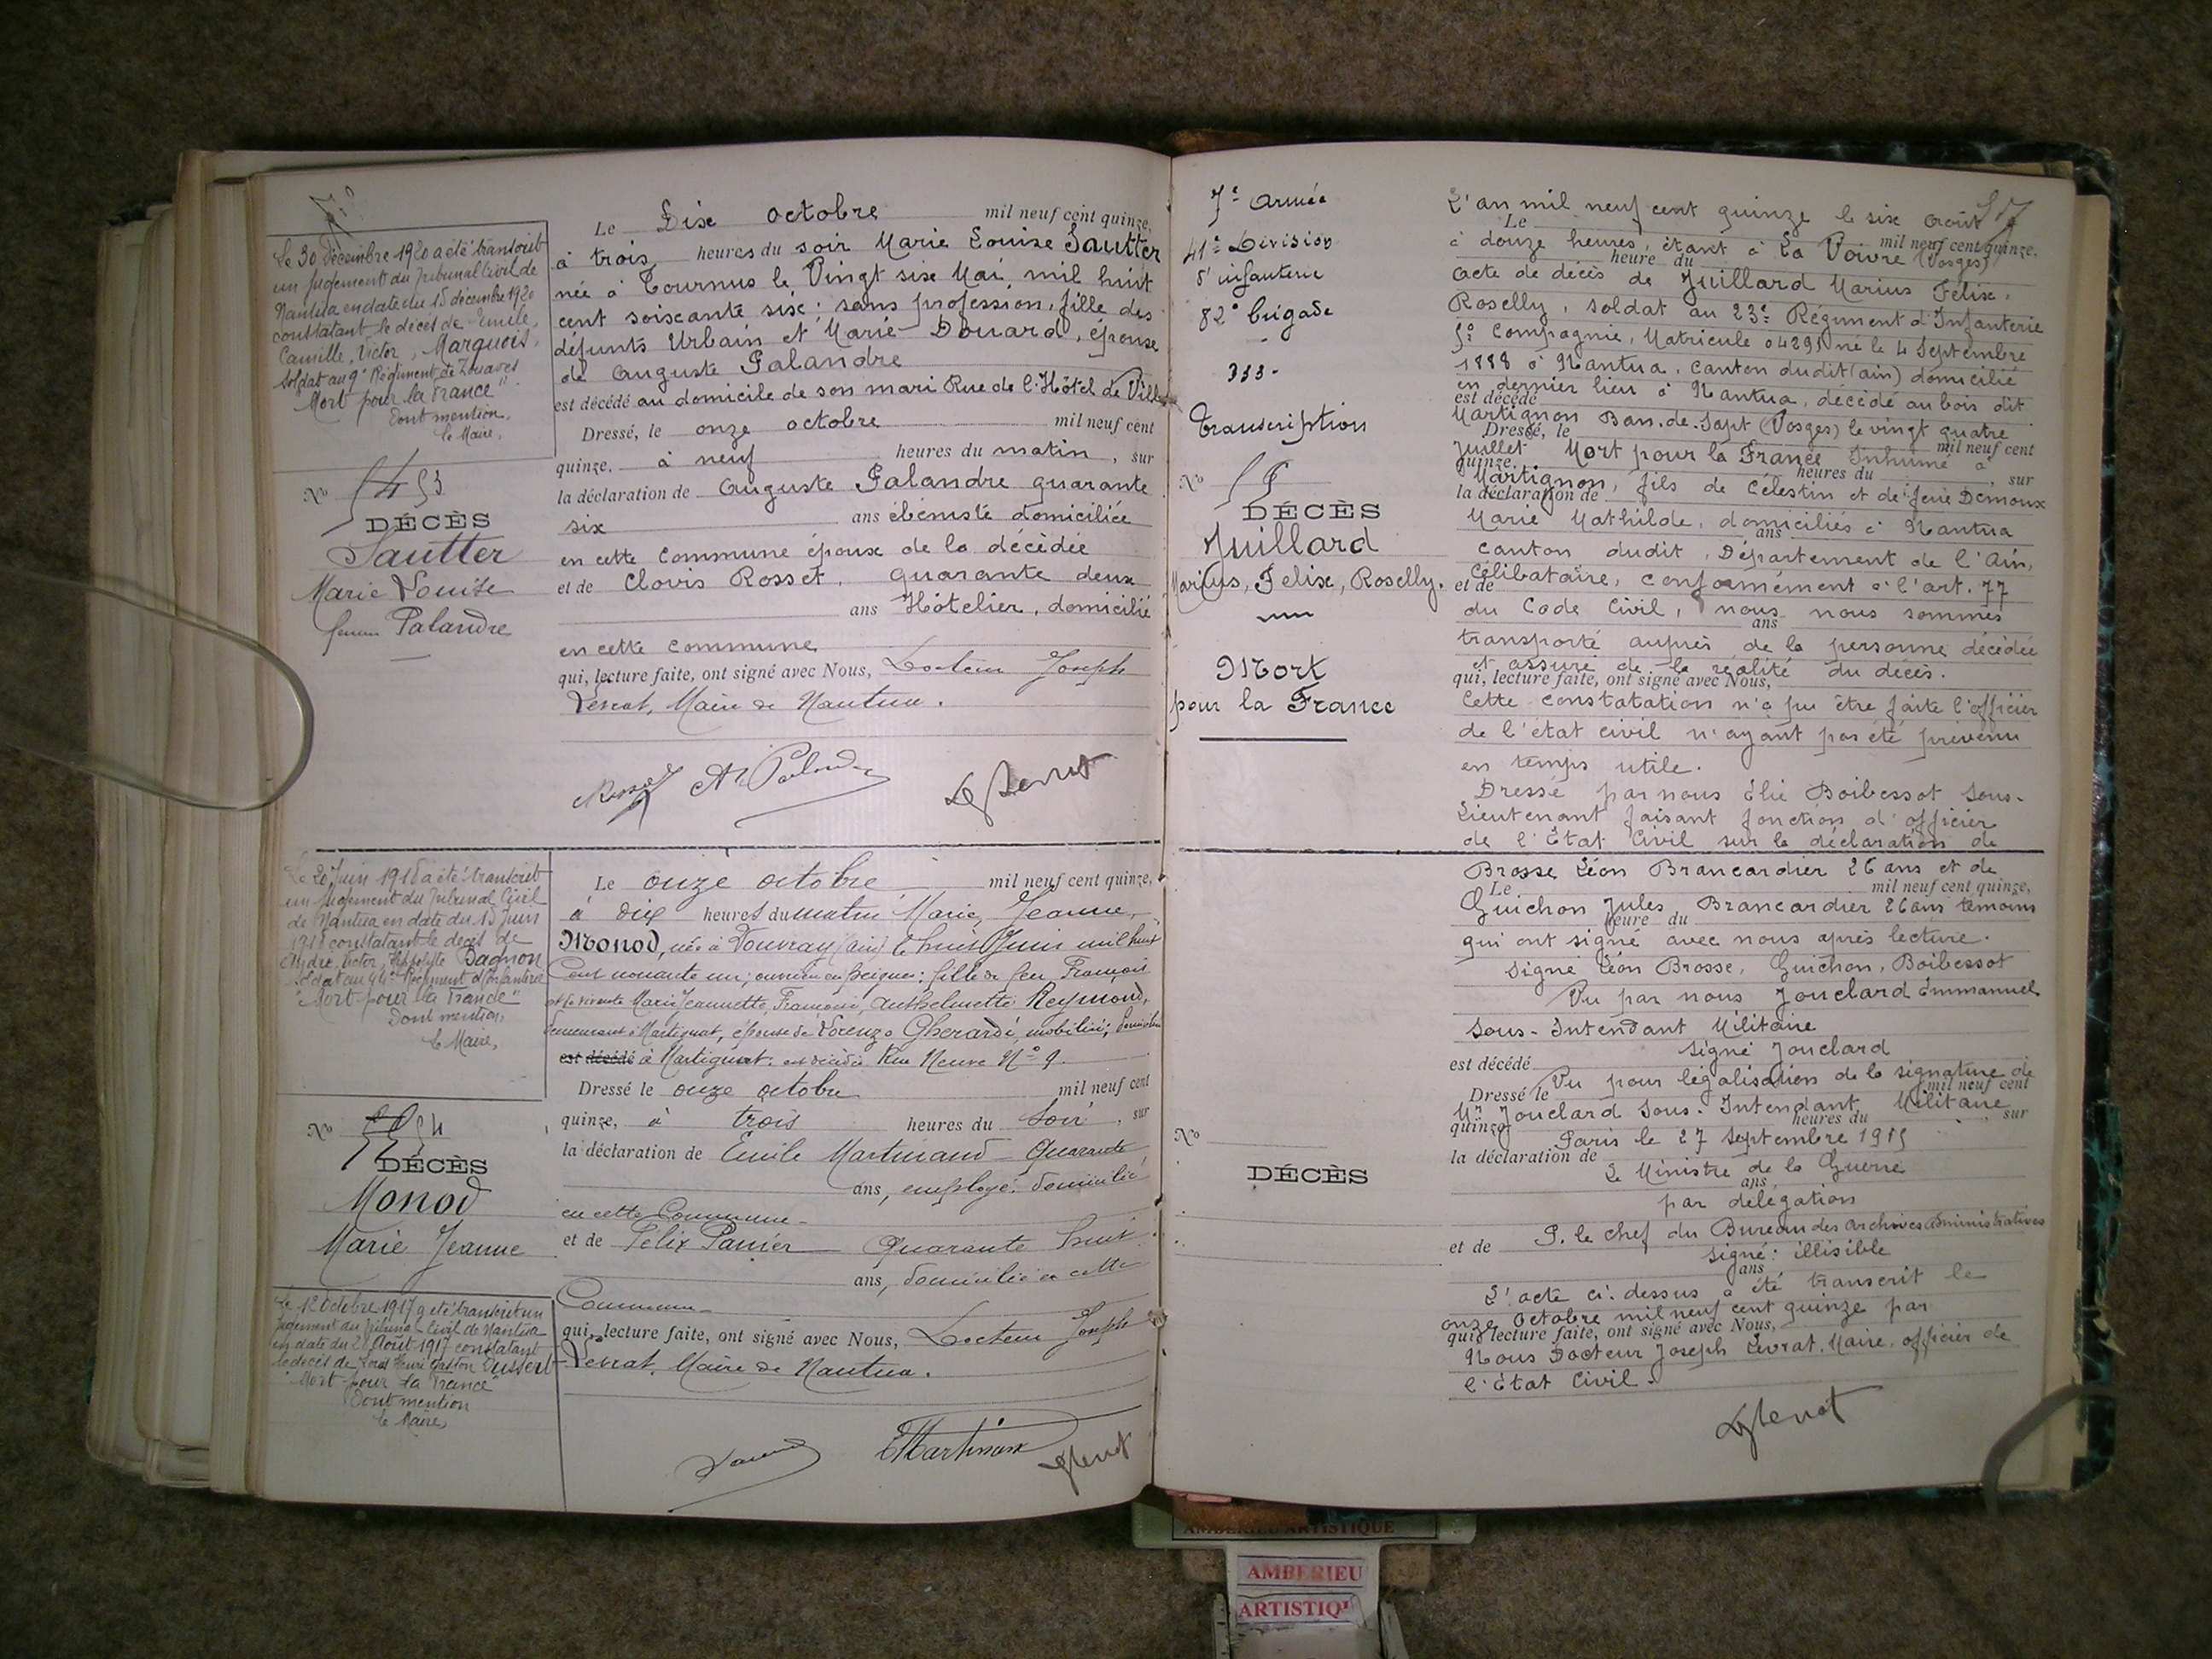 Le 30 Décembre 1920 a été transcrit
un jugement du Tribunal Civil de
Nantua en date du 15 décembre 1920
constatant le décès de Emile,
Camille, Victor, Marquois,
Soldat au 9e Régiment de Zouaves
"Mort pour la France"
Dont mention,
le Maire,
No 53
DÉCÈS
Sautter
Marie Louise
femme Palandre
Le Dix octobre mil neuf cent quinze,
à trois heures du soir Marie Louise Sautter
née à Tournus le Vingt six Mai, mil huit
cent soixante six; sans profession, fille des
défunts Urbain et Marie Douard, épouse
de Auguste Palandre
est décédé au domicile de son mari Rue de l'Hôtel de Ville
Dressé, le onze octobre mil neuf cent
quinze, à neuf heures du matin, sur
la déclaration de Auguste Palandre quarante
six ans ébéniste domiciliée
en cette commune époux de la décédée
et de Clovis Rosset, quarante deux
ans Hôtelier, domicilié
en cette commune
qui, lecture faite, ont signé avec Nous, Docteur Joseph
Levrat, Maire de Nantua.
Le 20 Juin 1918 a été transcrit
un jugement du Tribunal Civil
de Nantua en date du 15 Juin
1918 constatant le décès de
André, Victor, Hippolyte Dagnon
Soldat au 44e Régiment d'Infanterie
"Mort pour la France"
Dont mention,
le Maire,
No 54
DÉCÈS
Monod
Marie Jeanne
Le 12 octobre 1917 a été transcrit un
jugement du Tribunal Civil de Nantua
en date du 28 Août 1917 constatant
le décès de Henri Gaston Dussert
"Mort pour la France"
Dont mention
le Maire,
Le onze octobre mil neuf cent quinze,
à dix heures du matin Marie Jeanne,
Monod, née à Vouvray (ain) le huit Juin mil huit
Cent nonante un; ouvrière en peignes: fille de feu François
et de vivante Marie Jeannette, Françoise, Anthelmette Reymond,
demeurant à Martignat, épouse de Lorenzo Gherardi, mobilisé; domiciliée
est décédé à Martignat: est décédée Rue Neuve No 9.
Dressé le onze octobre mil neuf cent
quinze, à trois heures du soir, sur
la déclaration de Emile Martinand Quarante
ans, employé domicilié
en cette Commune
et de Félix Panier Quarante huit
ans, domicilié en cette
Commune
qui, lecture faite, ont signé avec Nous, Docteur Joseph
Levrat, Maire de Nantua.
7e Armée
41e Division
d'infanterie
82e brigade
333.
Transcription
No
DÉCÈS
Juillard
Marius, Felix, Roselly.
Mort
pour la France
No
DÉCÈS
57
L'an mil neuf cent quinze le six Août
Le mil neuf cent quinze,
à douze heures, étant à La Voivre (Vosges)
heure du
acte de décès de Juillard Marius Félix,
Roselly, soldat au 23e Régiment d'Infanterie
5e Compagnie, Matricule 04291 né le 4 Septembre
1888 à Nantua, canton dudit (ain) domicilié
en dernier lieu à Nantua, décédé au bois dit
est décédé
Martignon Ban-de-Sapt (Vosges) le vingt quatre
Dressé, le mil neuf cent
Juillet Mort pour la France Inhumé à
quinze, heures du , sur
Martignon, fils de Célestin et de feue Démoux
la déclaration de
Marie Mathilde, domiciliés à Nantua
ans
canton dudit, Département de l'Ain,
Célibataire, conformément à l'art. 77
et de
du Code Civil, nous nous sommes
ans
transporté auprès de la personne décédée
et assuré de la réalité du décès.
qui, lecture faite, ont signé avec Nous,
Cette constatation n'a pu être faite l'officier
de l'état civil n'ayant pas été prévenu
en temps utile.
Dressé par nous Elie Boibessot Sous-
Lieutenant faisant fonction d'officier
de l'Etat Civil sur la déclaration de
Brosse Léon Brancardier 26 ans et de
Le mil neuf cent quinze,
Guichon Jules Brancardier 26 ans témoins
heure du
qui ont signé avec nous après lecture.
Signé Léon Brosse, Guichon, Boibessot
Vu par nous Jouclard Emmanuel
Sous-Intendant Militaire
Signé Jouclard
est décédé
Vu pour légalisation de la signature de
Dressé le mil neuf cent
Mr Jouclard Sous-Intendant Militaire
quinze, heures du , sur
Paris le 27 Septembre 1915
la déclaration de
Le Ministre de la Guerre
ans,
par délégation
P. le chef du Bureau des archives administratives
et de
signé: illisible
ans
L'acte ci-dessus a été transcrit le
onze Octobre mil neuf cent quinze par
qui, lecture faite, ont signé avec Nous,
Nous Docteur Joseph Levrat, Maire, officier de
l'État Civil.
AMBERIEU ARTISTIQUE
AMBERIEU
ARTISTIQ